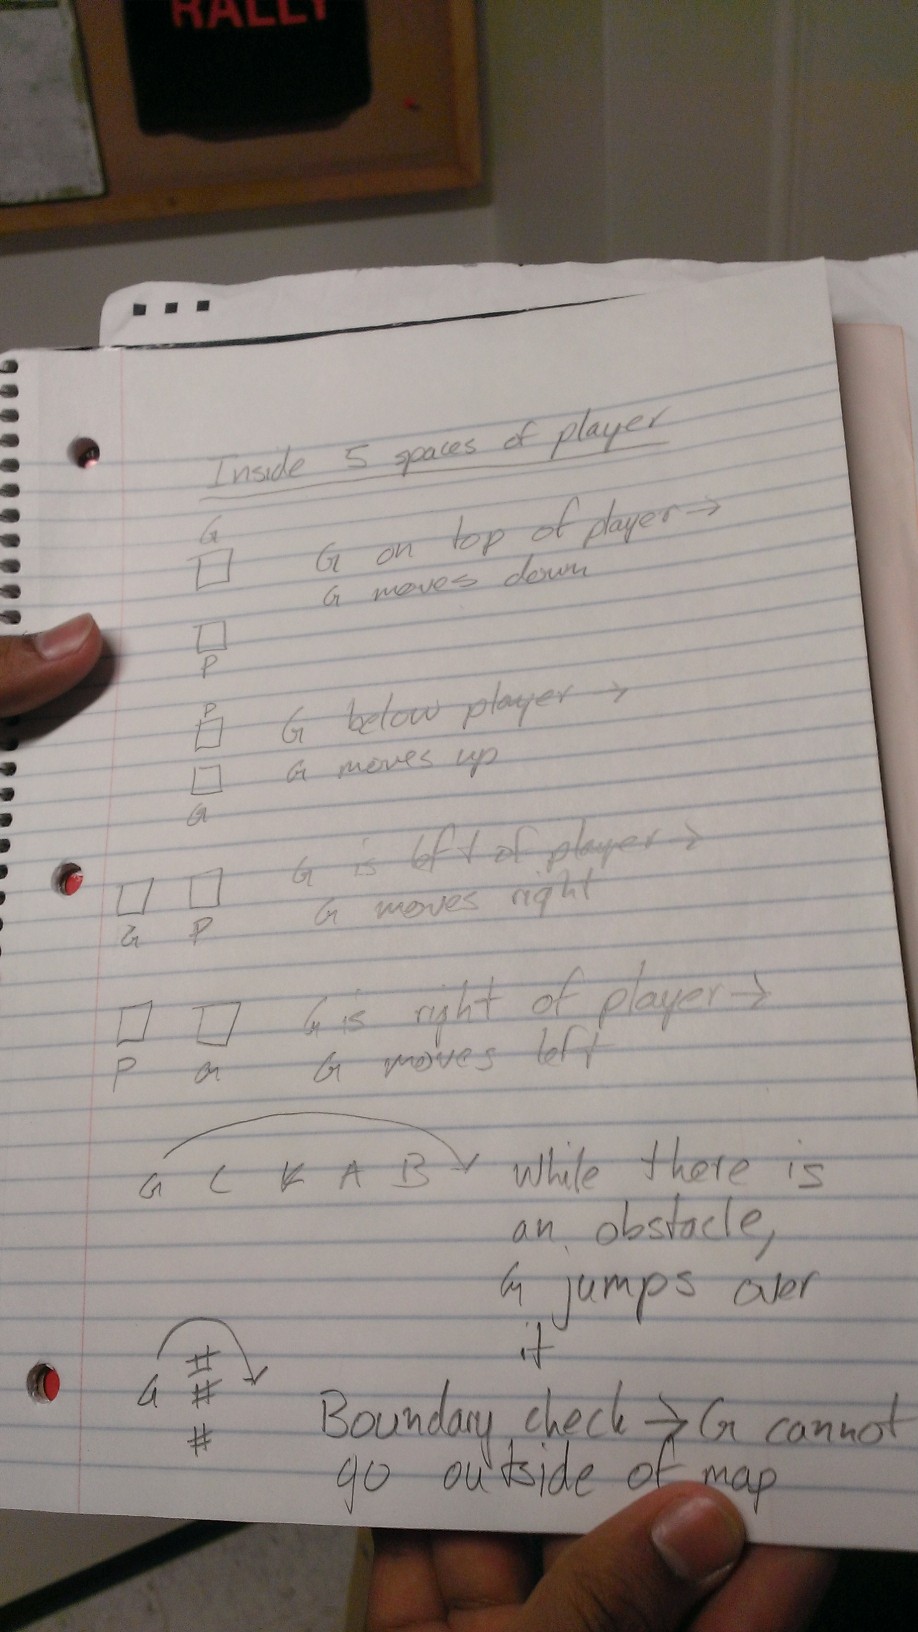 RALLY
Inside 5 spaces of player
G
G on top of player →
G moves down
P
P
G below player →
G moves up
G
G is left of player →
G moves right
G P
G is right of player →
G moves left
P G
G C K A B
While there is
an obstacle,
G jumps over
it
#
G #
#
Boundary check → G cannot
go outside of map